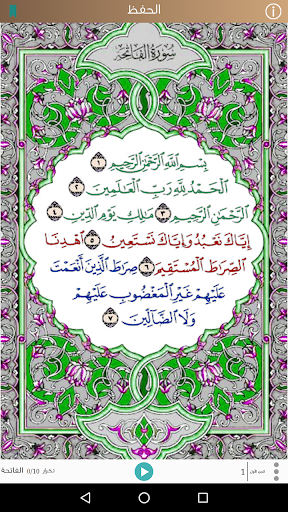 الحفظ
سورة الفاتحة
بِسْمِ اللَّهِ الرَّحْمَٰنِ الرَّحِيمِ ١
الْحَمْدُ لِلَّهِ رَبِّ الْعَالَمِينَ ٢
الرَّحْمَٰنِ الرَّحِيمِ ٣ مَالِكِ يَوْمِ الدِّينِ ٤
إِيَّاكَ نَعْبُدُ وَإِيَّاكَ نَسْتَعِينُ ٥ اهْدِنَا
الصِّرَاطَ الْمُسْتَقِيمَ ٦ صِرَاطَ الَّذِينَ أَنْعَمْتَ
عَلَيْهِمْ غَيْرِ الْمَغْضُوبِ عَلَيْهِمْ
وَلَا الضَّالِّينَ ٧
الجزء الأول 1 تكرار 0/10 الفاتحة